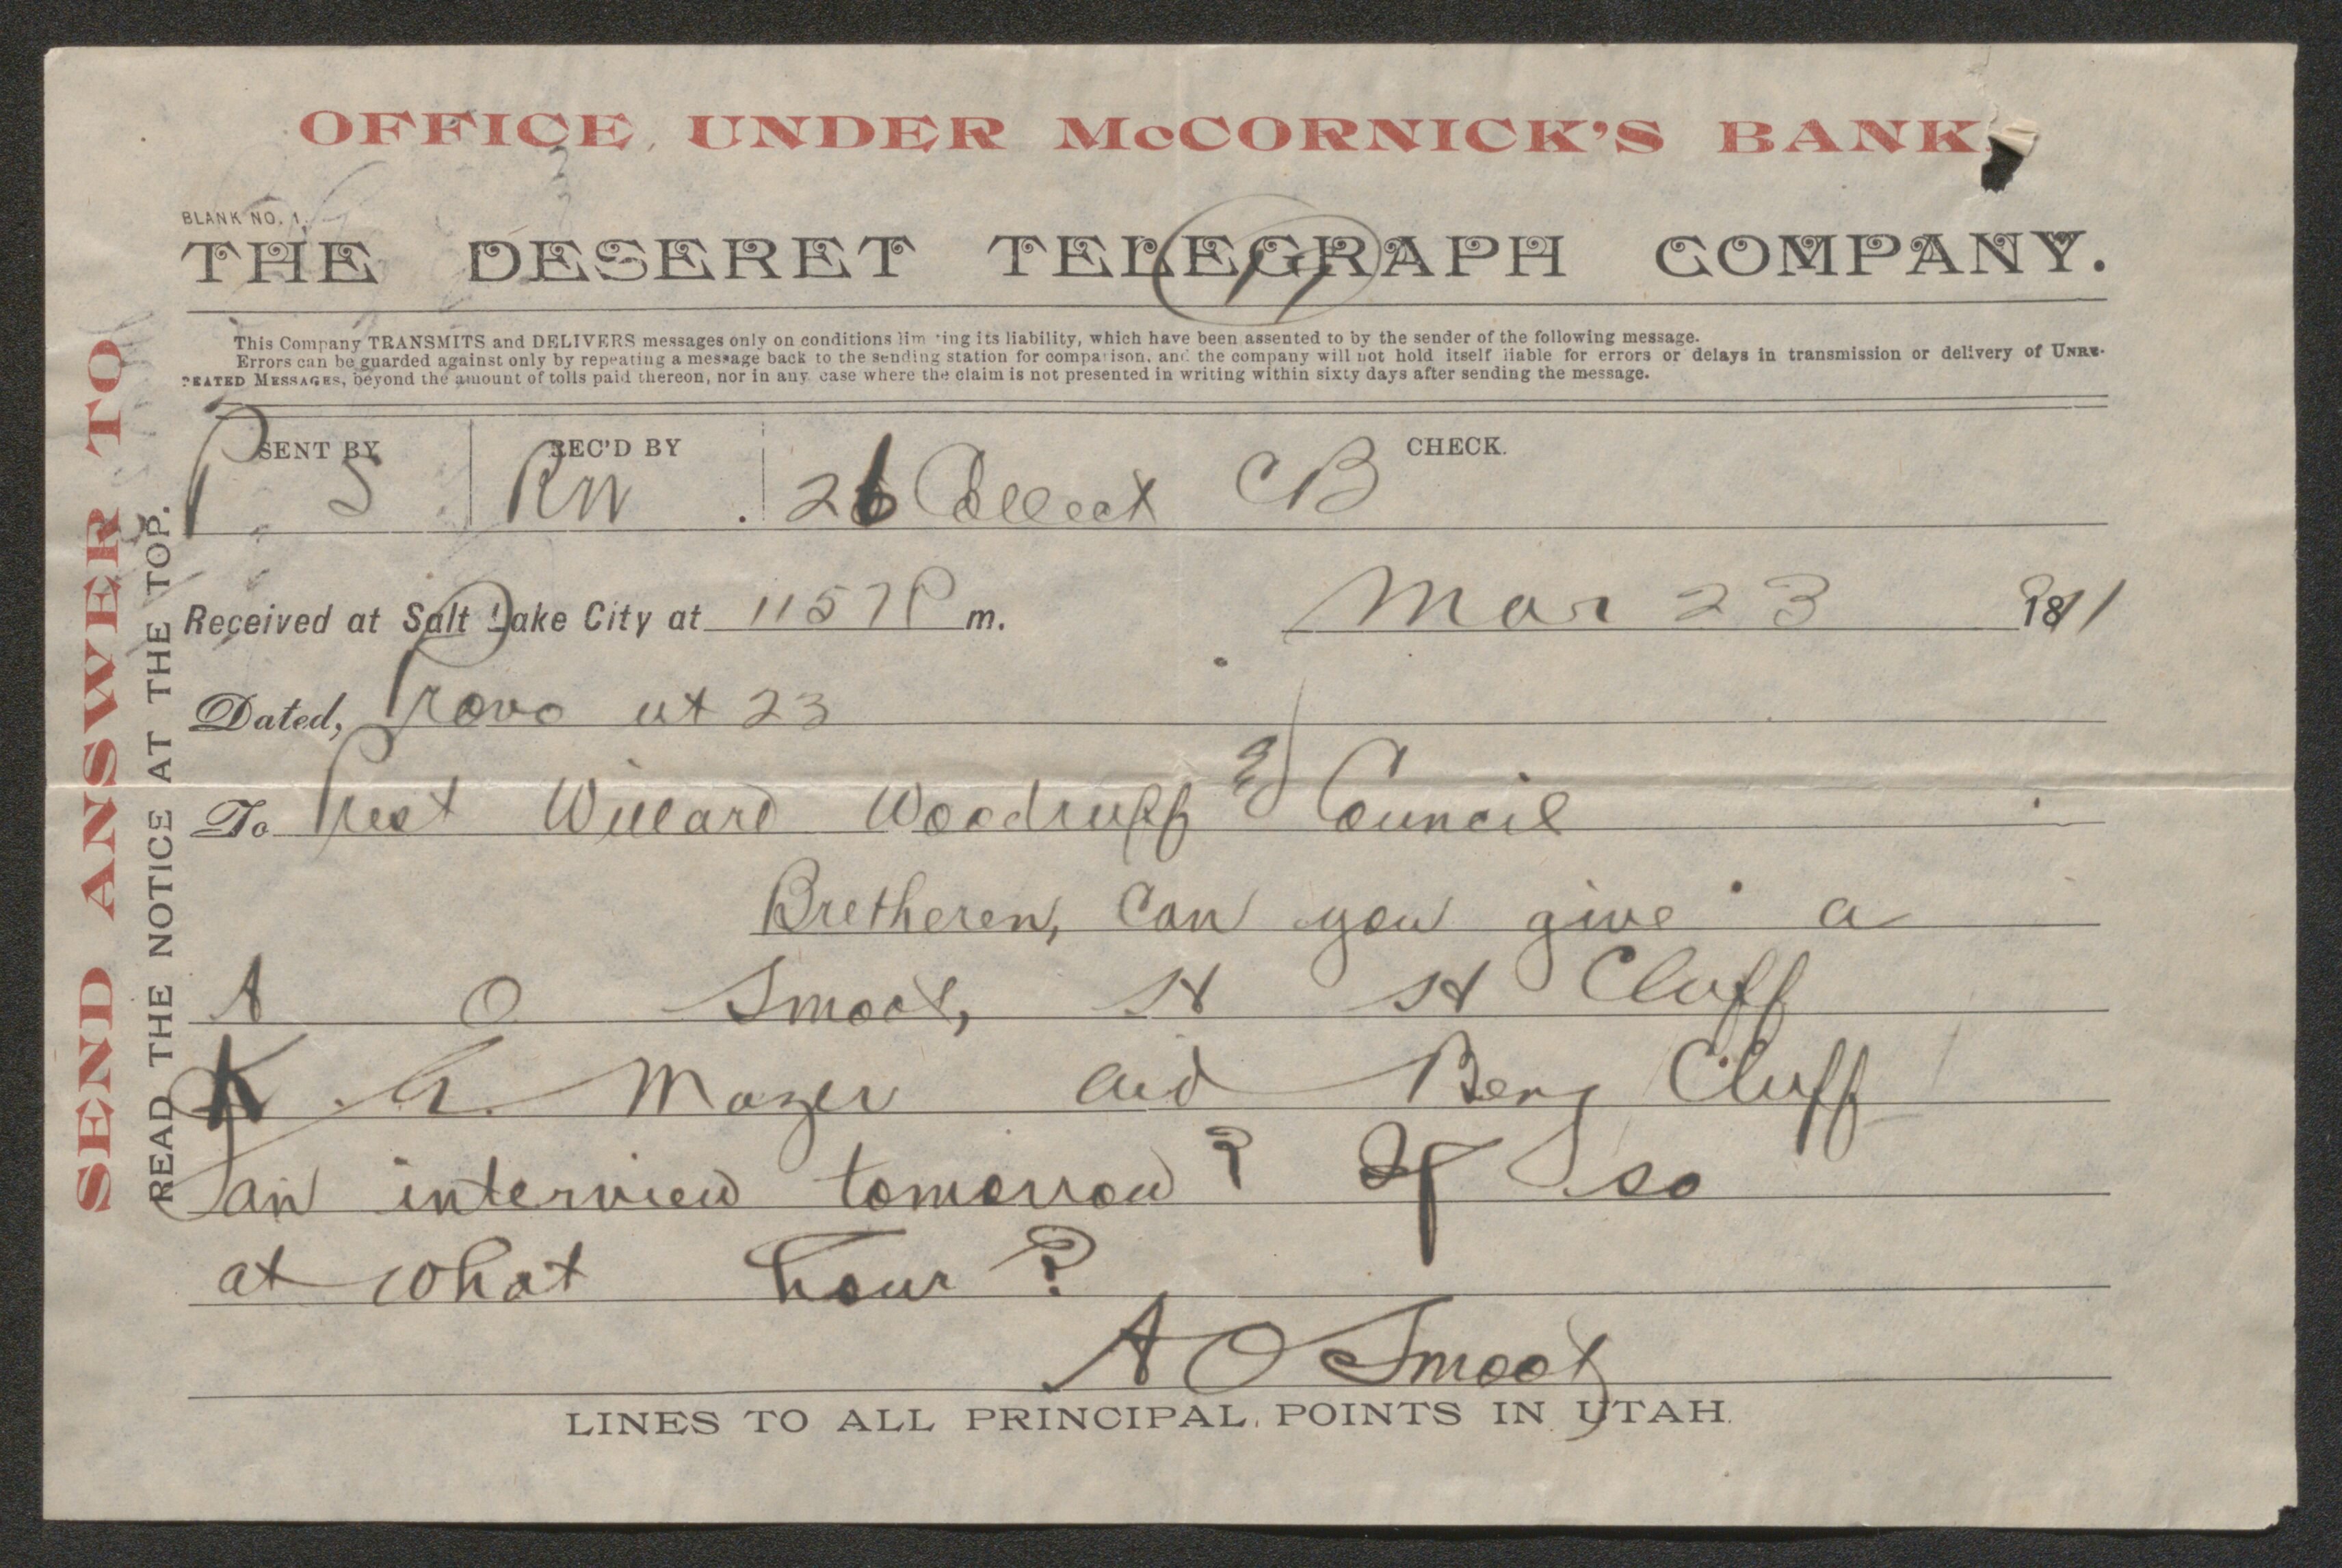 OFFICE UNDER McCORNICK'S BANK
BLANK NO. 1.
THE DESERET TELEGRAPH COMPANY.
This Company TRANSMITS and DELIVERS messages only on conditions limiting its liability, which have been assented to by the sender of the following message.
Errors can be guarded against only by repeating a message back to the sending station for comparison, and the company will not hold itself liable for errors or delays in transmission or delivery of UNRE-
PEATED MESSAGES, beyond the amount of tolls paid thereon, nor in any case where the claim is not presented in writing within sixty days after sending the message.
SENT BY REC'D BY CHECK.
P S Rw 26 Collect CB
Received at Salt Lake City at 1157 P m. Mar 23 1891
Dated, Provo ut 23
To Prest Willard Woodruff & Council
Bretheren, Can you give a
A O Smoot, H H Cluff
K. G. Mazer and Benj Cluff
an interview tomorrow? If so
at what hour?
A O Smoot
LINES TO ALL PRINCIPAL POINTS IN UTAH.
SEND ANSWER TO
READ THE NOTICE AT THE TOP.